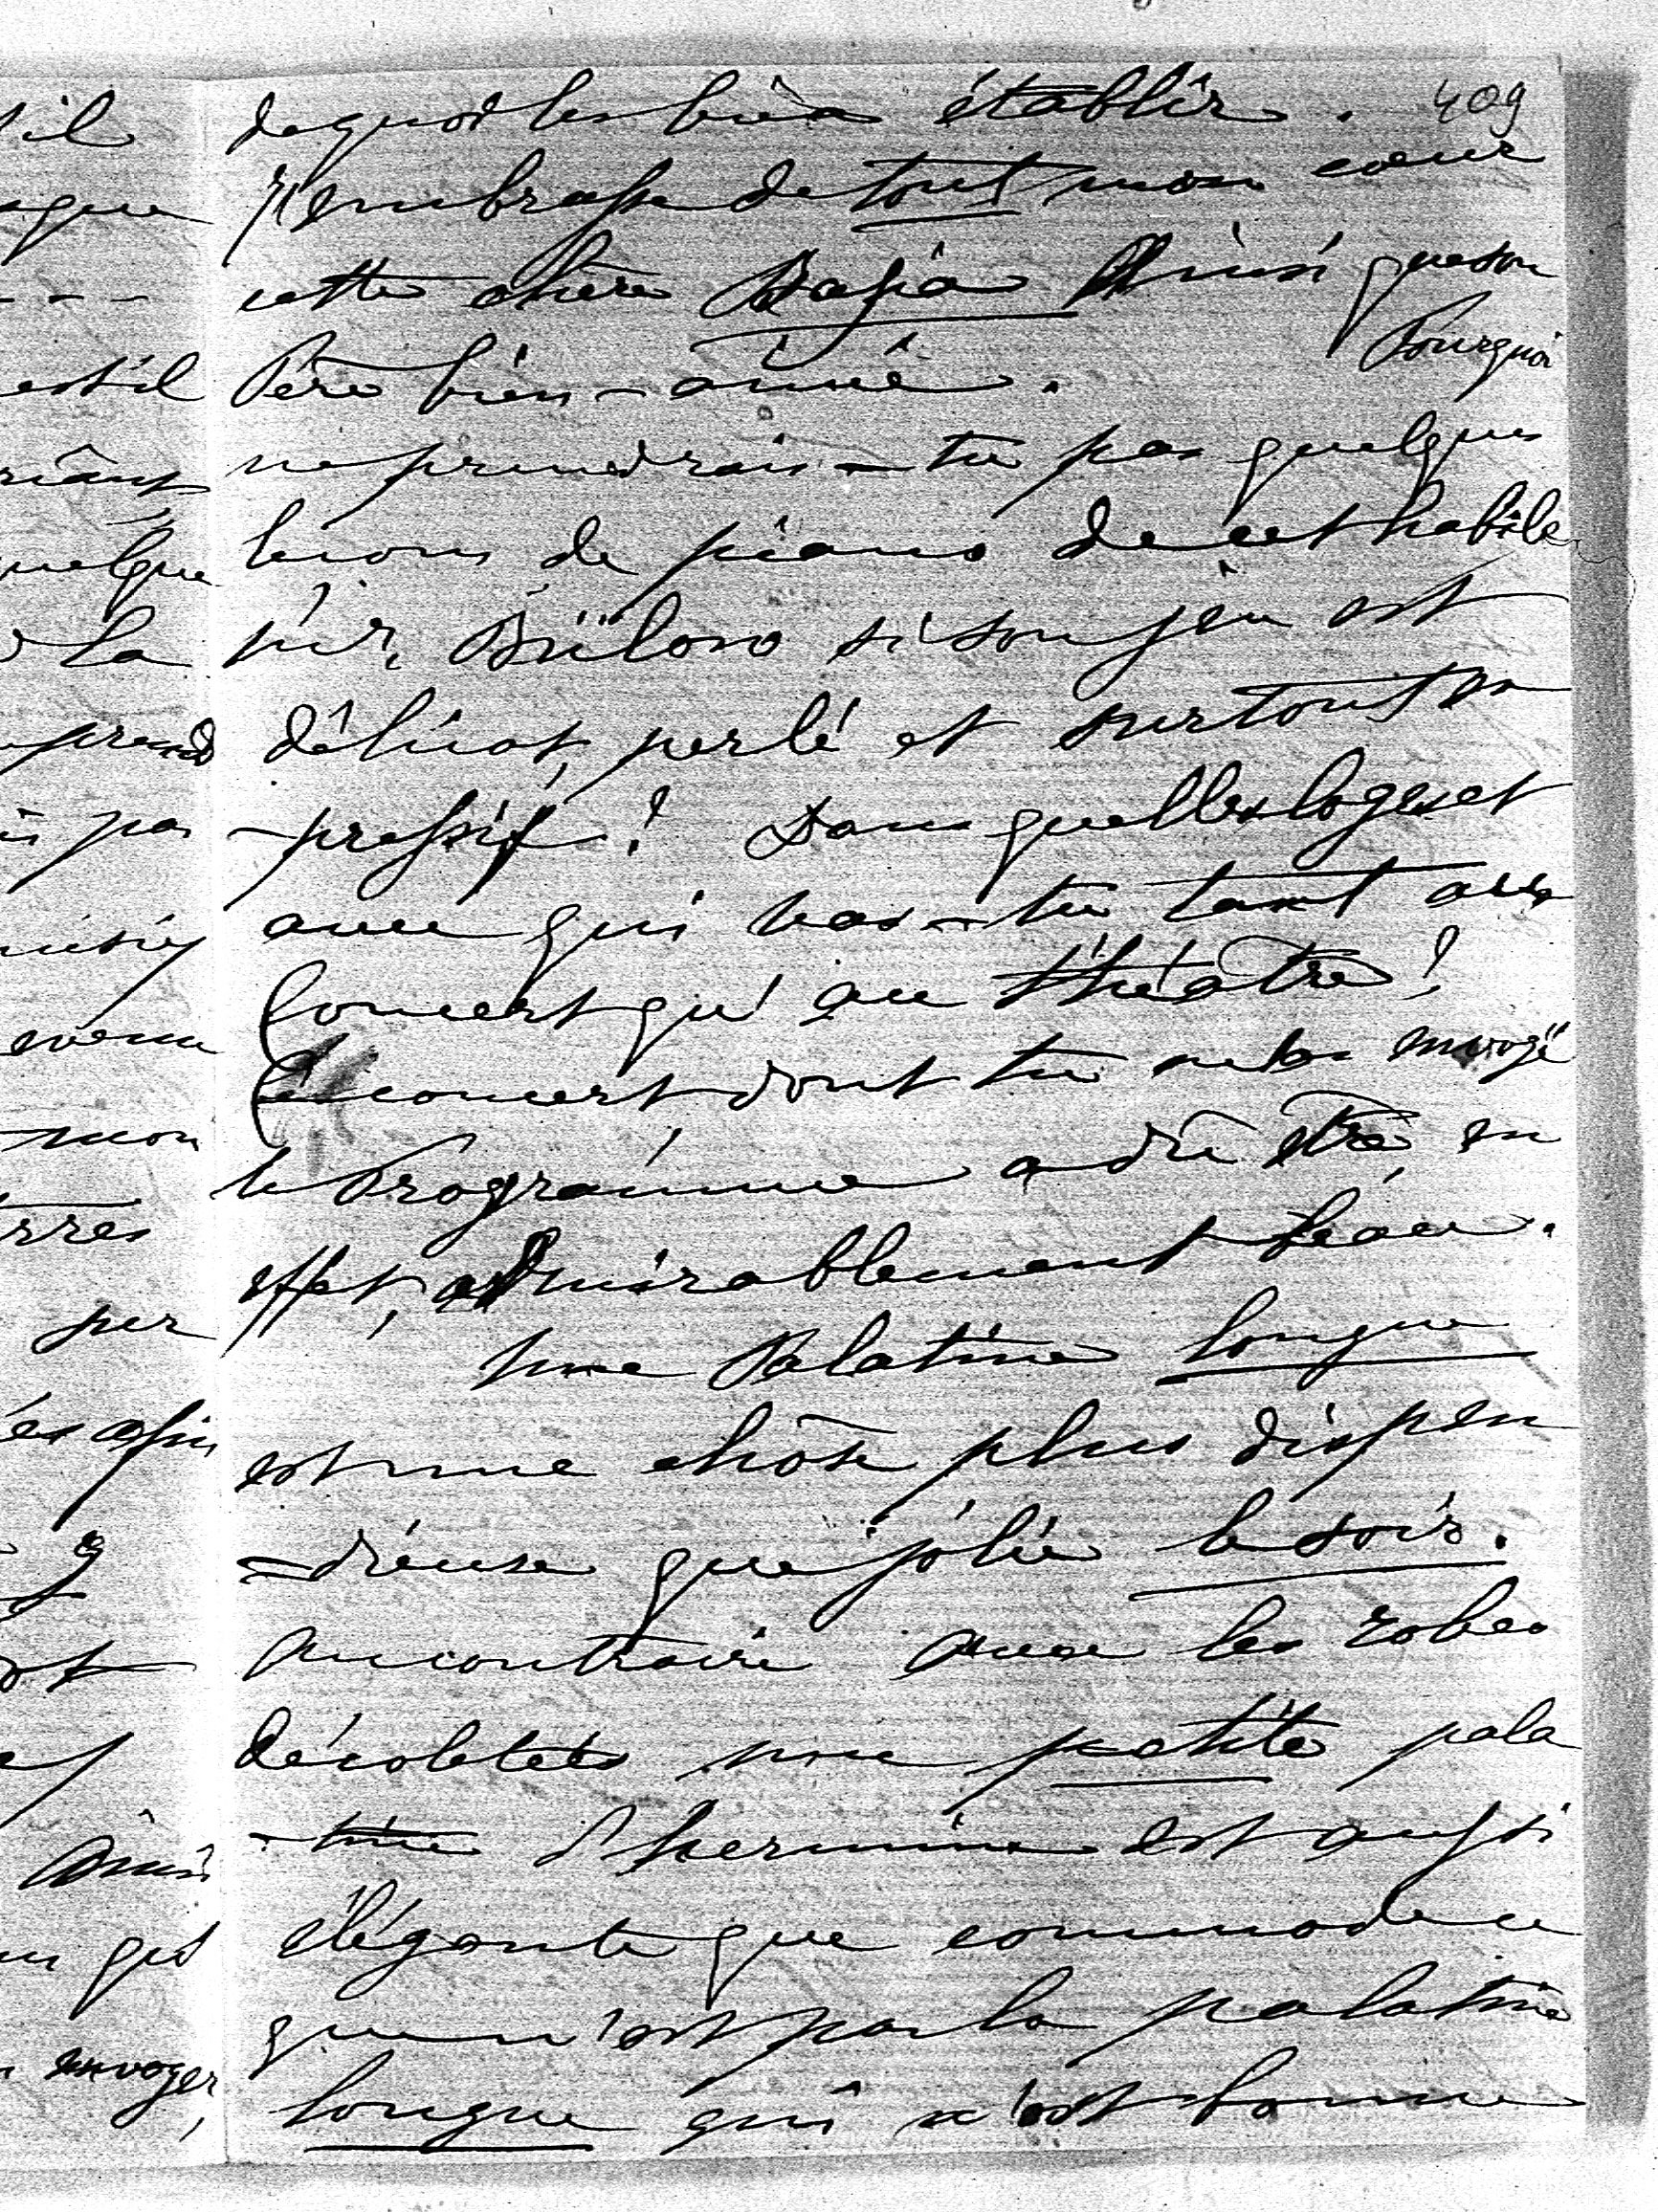 409
de quoi les bien établir.
J'embrasse de tout mon coeur
cette chère Basia Ainsi que son
Père bien-aimé.
Pourquoi
ne prendrais-tu pas quelques
lecons de piano de cet habile
Mr, Bülow si son jeu est
délicat, perlé et surtout ex
-pressif? Dans quelles loges et
avec qui vas-tu tant au
Concert qu'au théâtre?
Le concert dont tu m'as envoyé
le Programme a dû être, en
effet, admirablement beau.
Une Palatine longue
est une chose plus dispen
-dieuse que jolie le soir.
Au contraire avec les robes
décoletées une petite pala
-tine d'hermine est aussi
élégante que commode ce
que n'est pas la palatine
longue qui n'est bonne